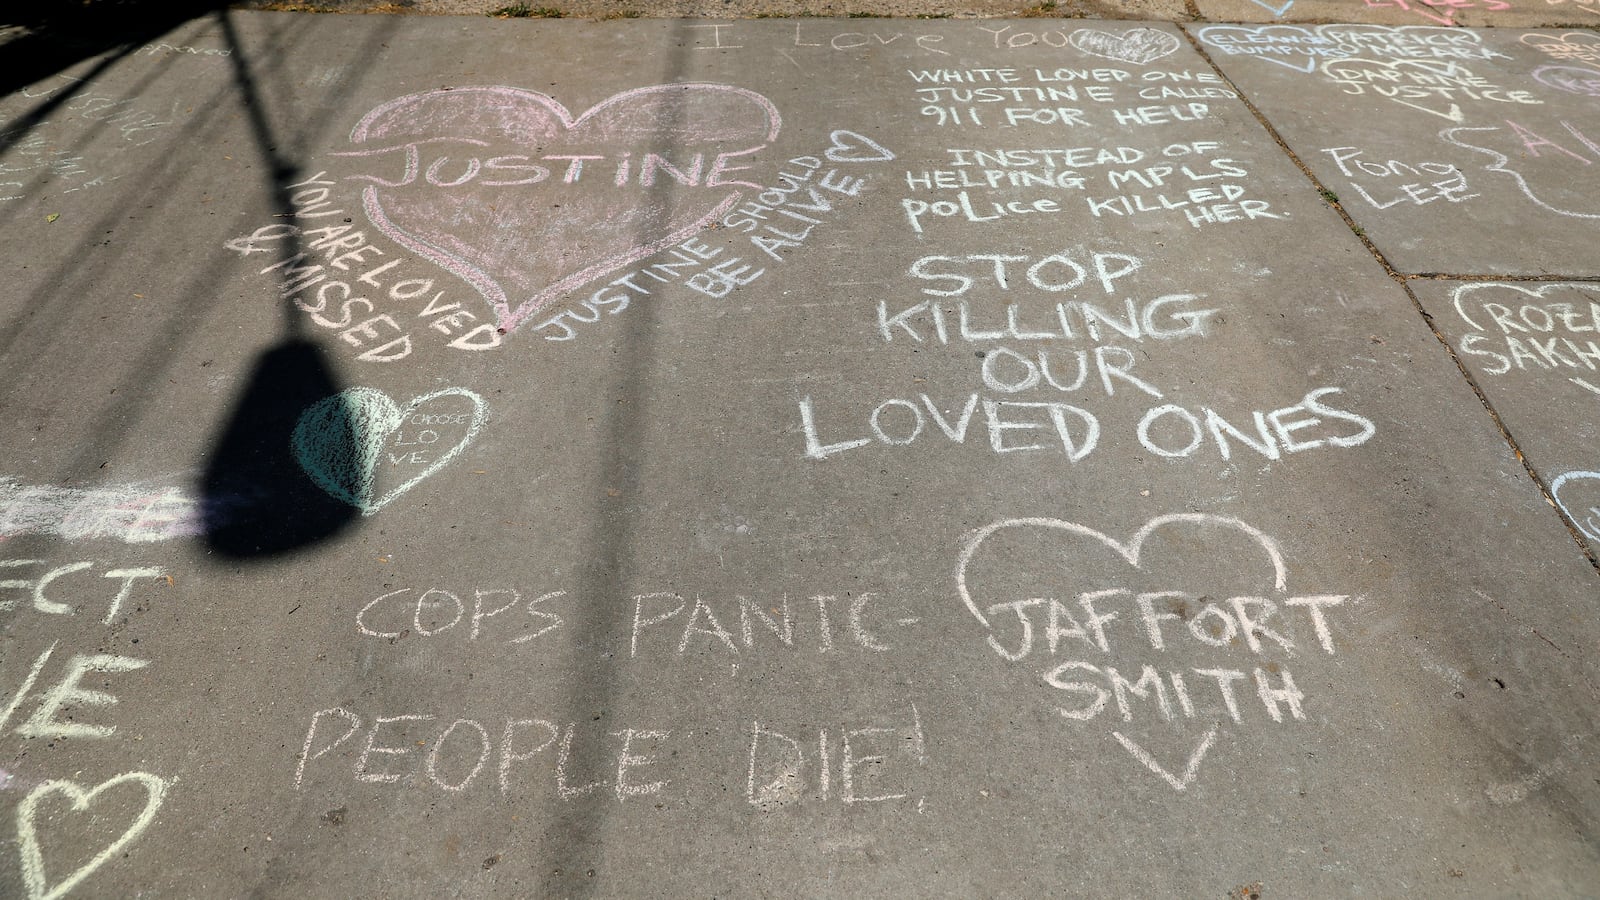 I LOVE YOU
JUSTINE
YOU ARE LOVED
& MISSED
JUSTINE SHOULD
BE ALIVE
WHITE LOVED ONE
JUSTINE CALLED
911 FOR HELP
INSTEAD OF
HELPING MPLS
POLICE KILLED
HER.
STOP
KILLING
OUR
LOVED ONES
CHOOSE
LO
VE
COPS PANIC-
PEOPLE DIE!
JAFFORT
SMITH
ECT
VE
ELEANOR
BUMPURS
PATRICK
O'MEARA
DAPHNE
JUSTICE
FONG
LEE
ROZA
SAKH